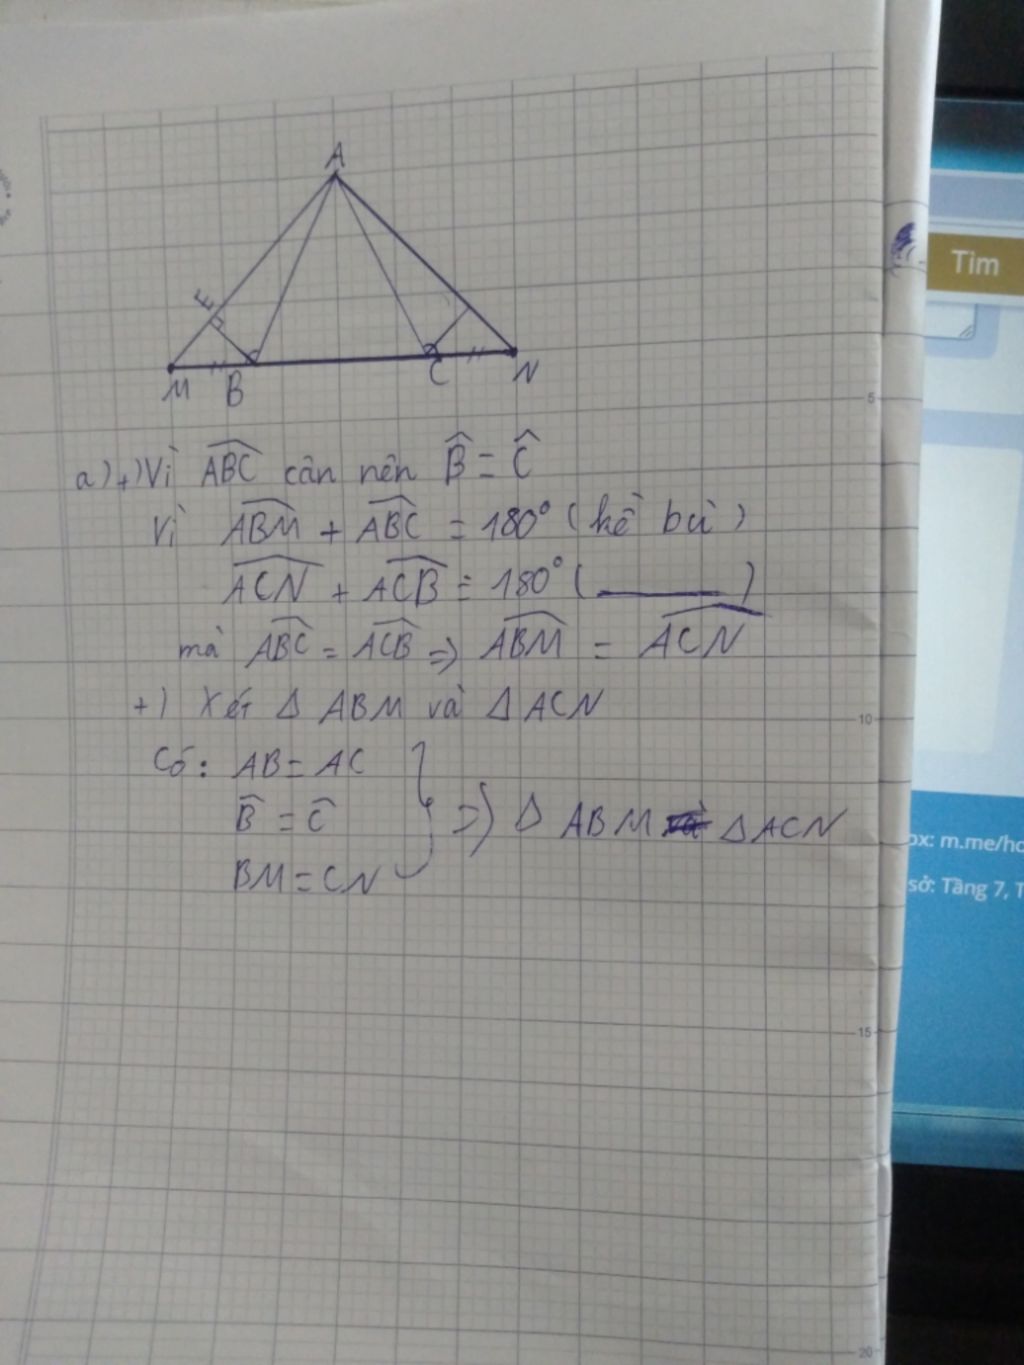 A
E
M B C N
a) +) Vì ABC cân nên B̂ = Ĉ
Vì ABM + ABC = 180° (kề bù)
ACN + ACB = 180° (______)
mà ABC = ACB => ABM = ACN
+) Xét Δ ABM và Δ ACN
Có: AB = AC
B̂ = Ĉ => Δ ABM = Δ ACN
BM = CN
Tìm
5
10
15
20
ox: m.me/ho
sở: Tầng 7, T